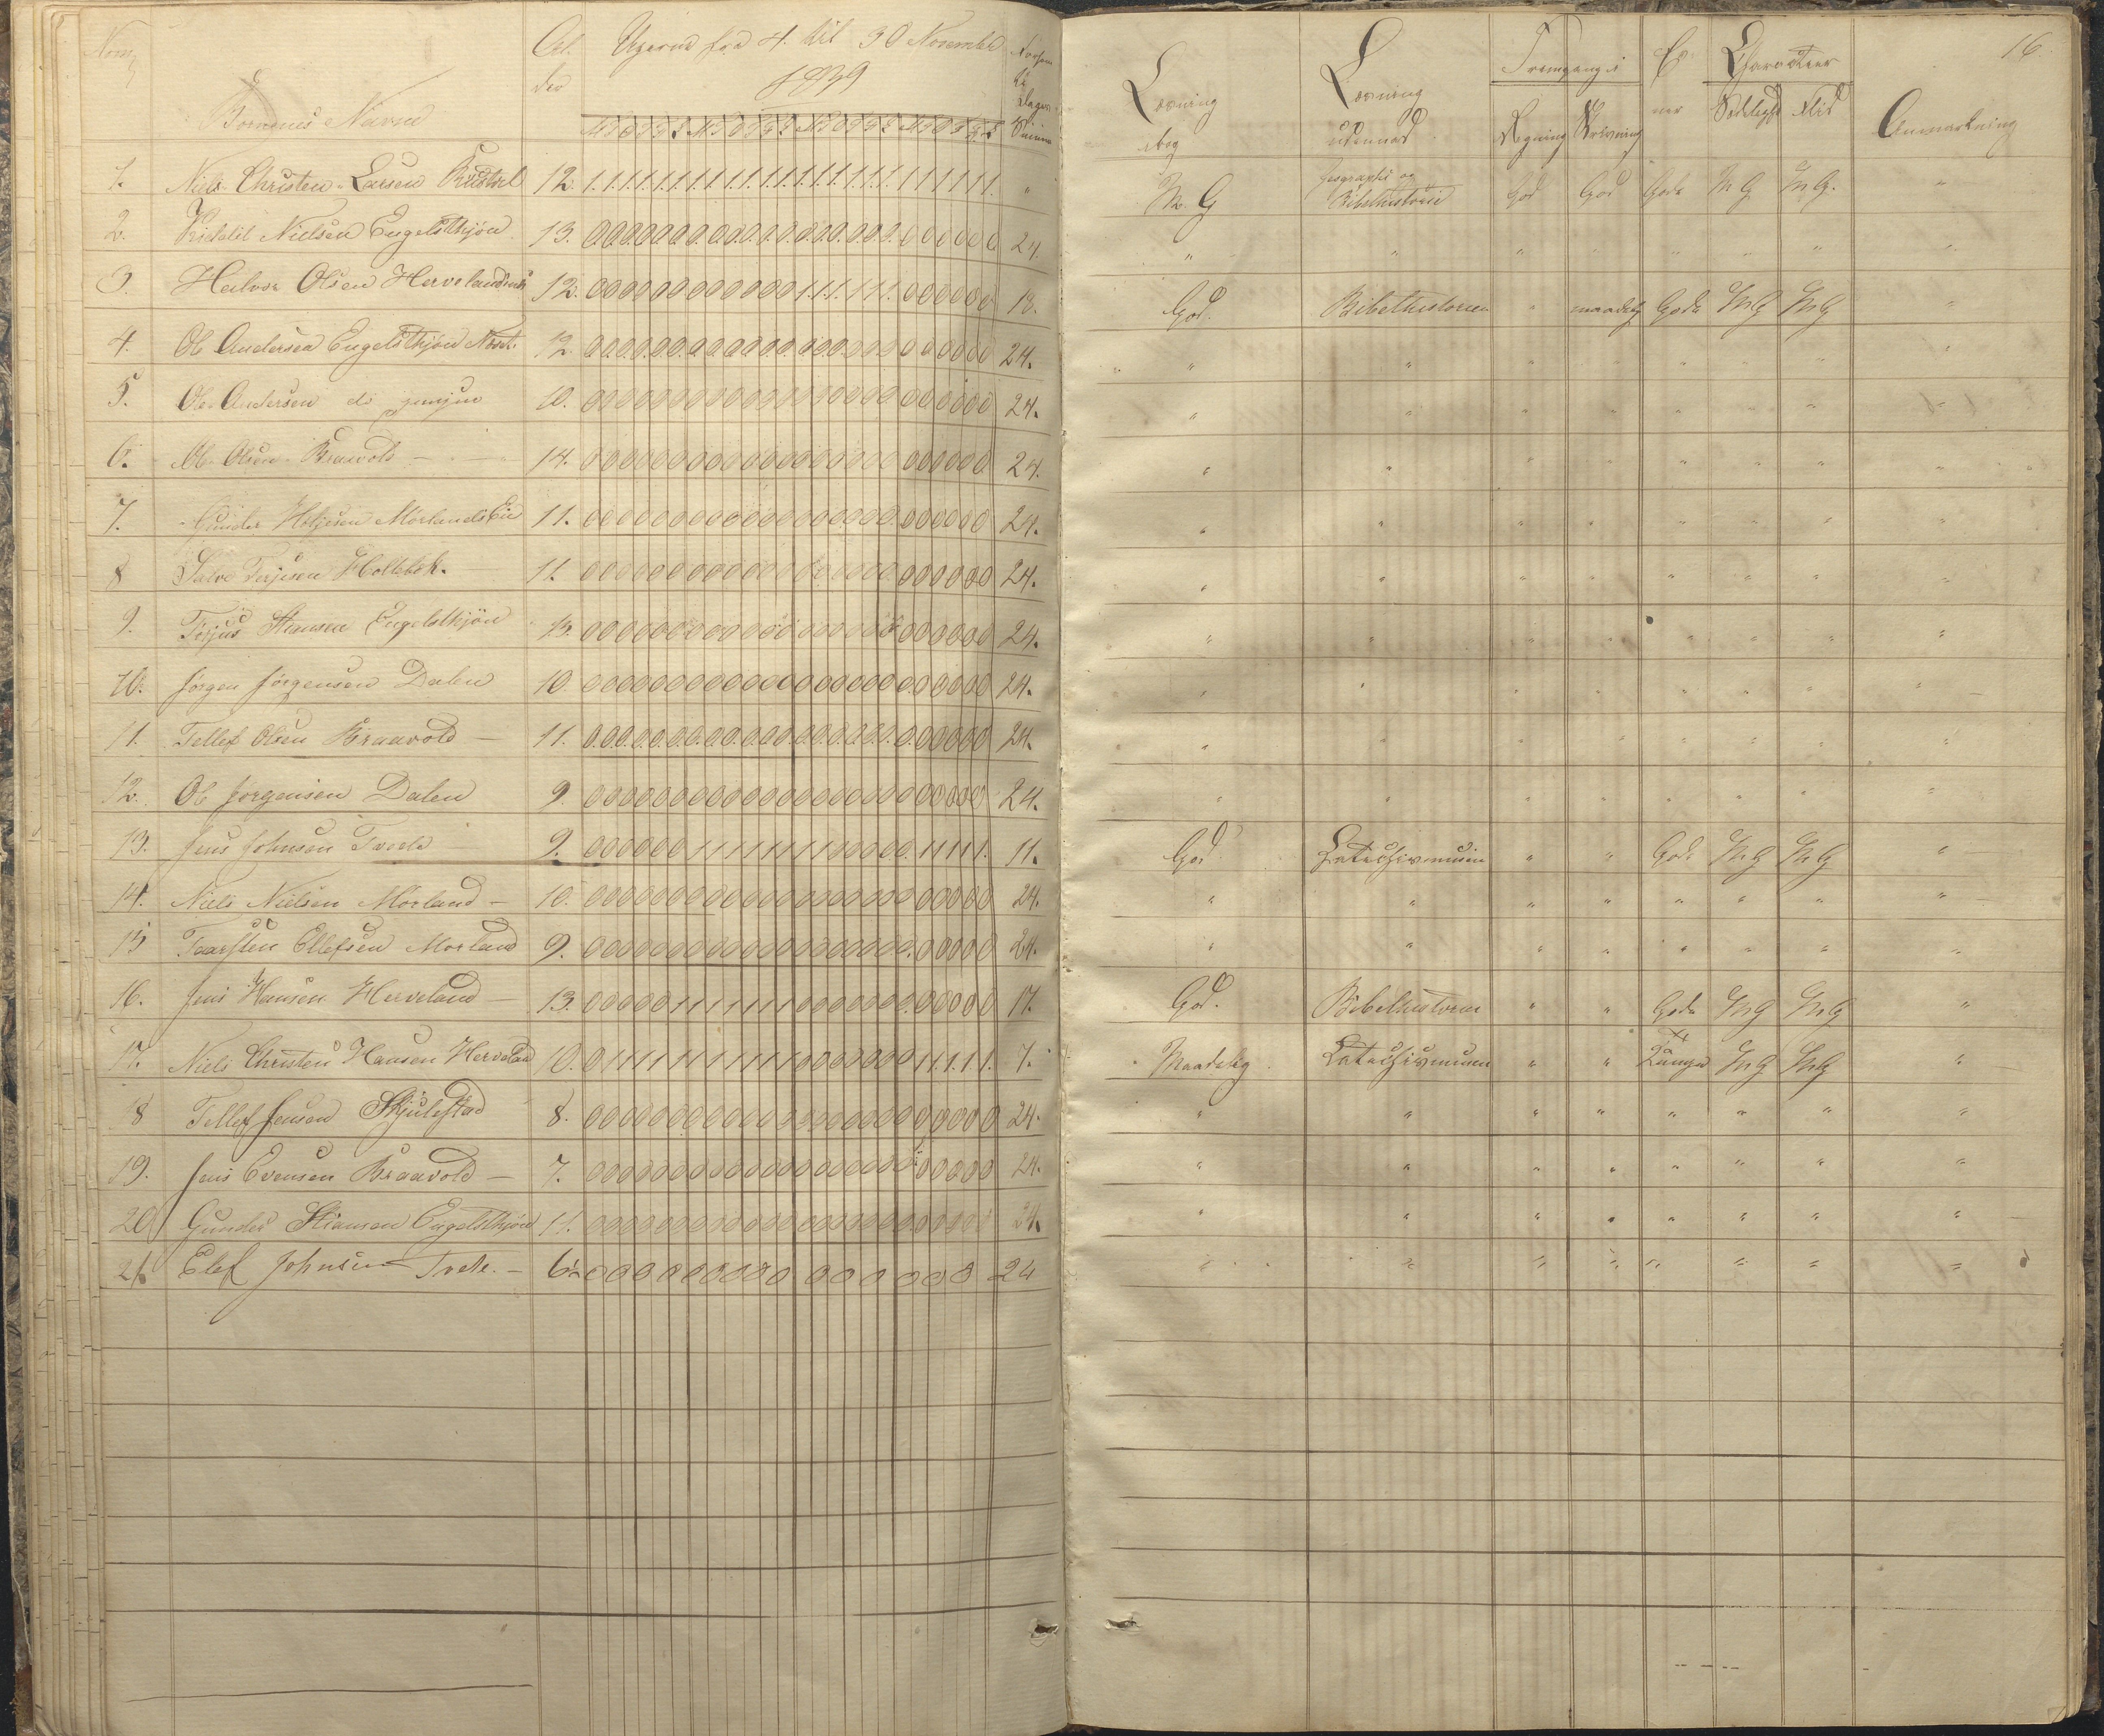 Børnenes Navne
Al
der
Ugerne fra 4. til 30 November
1839
Dagers
Summa
16.
Læsning
i bog
Læsning
udenad
Fremgang i
Regning Skrivning
Ev
ner
Charakteer
Sædelighed Flid
Anmærkning
1. Niels Christen Larsen 12. 1.1.1.1.1.1.1.1.1.1.1.1.1.1.1.1.1.1. 1 1 1 1 1 1. " M. G Geographi og Bibelhistorie God God Gode M G M G. "
2. Kittil Nielsen Engelsthjøn 13. 0 0 0 0 0 0 0 0 0 0 0 0 0 0 0 0 0 0 0 0 0 0 0 0 24. " " " " " " " "
3. Halvor Olsen 12. 0 0 0 0 0 0 0 0 0 0 0 0 1.1.1.1 1 1. 0 0 0 0 0 0 18. God. Bibelhistorien " maadelig Gode M G M G "
4. Ole Andersen Engelsthjøn 12. 0 0 0 0 0 0 0 0 0 0 0 0 0 0 0 0 0 0 0 0 0 0 0 0 24. " " " " " " " "
5. Ole Andersen do junjur 10. 0 0 0 0 0 0 0 0 0 0 0 0 0 0 0 0 0 0 0 0 0 0 0 0 24. " " " " " " " "
6. Ole Olsen Braavold 14. 0 0 0 0 0 0 0 0 0 0 0 0 0 0 0 0 0 0 0 0 0 0 0 0 24. " " " " " " " "
7. Gunder Holjesen Mørlands Eie 11. 0 0 0 0 0 0 0 0 0 0 0 0 0 0 0 0 0 0 0 0 0 0 0 0 24. " " " " " " " "
8 Salve Terjesen Holtebek. 11. 0 0 0 0 0 0 0 0 0 0 0 0 0 0 0 0 0 0 0 0 0 0 0 0 24. " " " " " " " "
9. Terjus Stiansen Engelsthjøn 13. 0 0 0 0 0 0 0 0 0 0 0 0 0 0 0 0 0 0 0 0 0 0 0 0 24. " " " " " " " "
10. Jørgen Jørgensen Dalen 10. 0 0 0 0 0 0 0 0 0 0 0 0 0 0 0 0 0 0 0 0 0 0 0 0 24. " " " " " " " "
11. Tellef Olsen Braavold – 11. 0 0 0 0 0 0 0 0 0 0 0 0 0 0 0 0 0 0 0 0 0 0 0 0 24. " " " " " " " "
12. Ole Jørgensen Dalen 9. 0 0 0 0 0 0 0 0 0 0 0 0 0 0 0 0 0 0 0 0 0 0 0 0 24. " " " " " " " "
13. Jens Johnsen Tvede 9. 0 0 0 0 0 0 1 1 1 1 1 1 1 1 0 0 0 0 0. 1 1 1 1 1. 11. God Catechismusen " " Gode M G M G "
14. Niels Nielsen Mørland – 10. 0 0 0 0 0 0 0 0 0 0 0 0 0 0 0 0 0 0 0 0 0 0 0 0 24. " " " " " " " "
15 Taarsten Ellefsen Morland 9. 0 0 0 0 0 0 0 0 0 0 0 0 0 0 0 0 0 0 0 0 0 0 0 0 24. " " " " " " " "
16. Jens Hansen Herveland – 13. 0 0 0 0 0 1 1 1 1 1 1 1 0 0 0 0 0 0 0 0 0 0 0 0 17. God. Bibelhistorien " " Gode M G M G "
17. Niels Christen Hansen Herveland 10. 0 1 1 1 1 1 1 1 1 1 1 1 0 0 0 0 0 0 1 1. 1. 1. 1. 7. Maadelig Catechismusen " " Tunge M G M G "
18 Tellef Jensen Skjulestad 8. 0 0 0 0 0 0 0 0 0 0 0 0 0 0 0 0 0 0 0 0 0 0 0 0 24. " " " " " " " "
19. Jens Evensen Braavold – 7. 0 0 0 0 0 0 0 0 0 0 0 0 0 0 0 0 0 0 0 0 0 0 0 0 24. " " " " " " " "
20 Gunder Stiansen Engelsthjøn 11. 0 0 0 0 0 0 0 0 0 0 0 0 0 0 0 0 0 0 0 0 0 0 0 0 24. " " " " " " " "
21. Elef Johnsen Tvede. – 6 0 0 0 0 0 0 0 0 0 0 0 0 0 0 0 0 0 24 " " " " " " " "